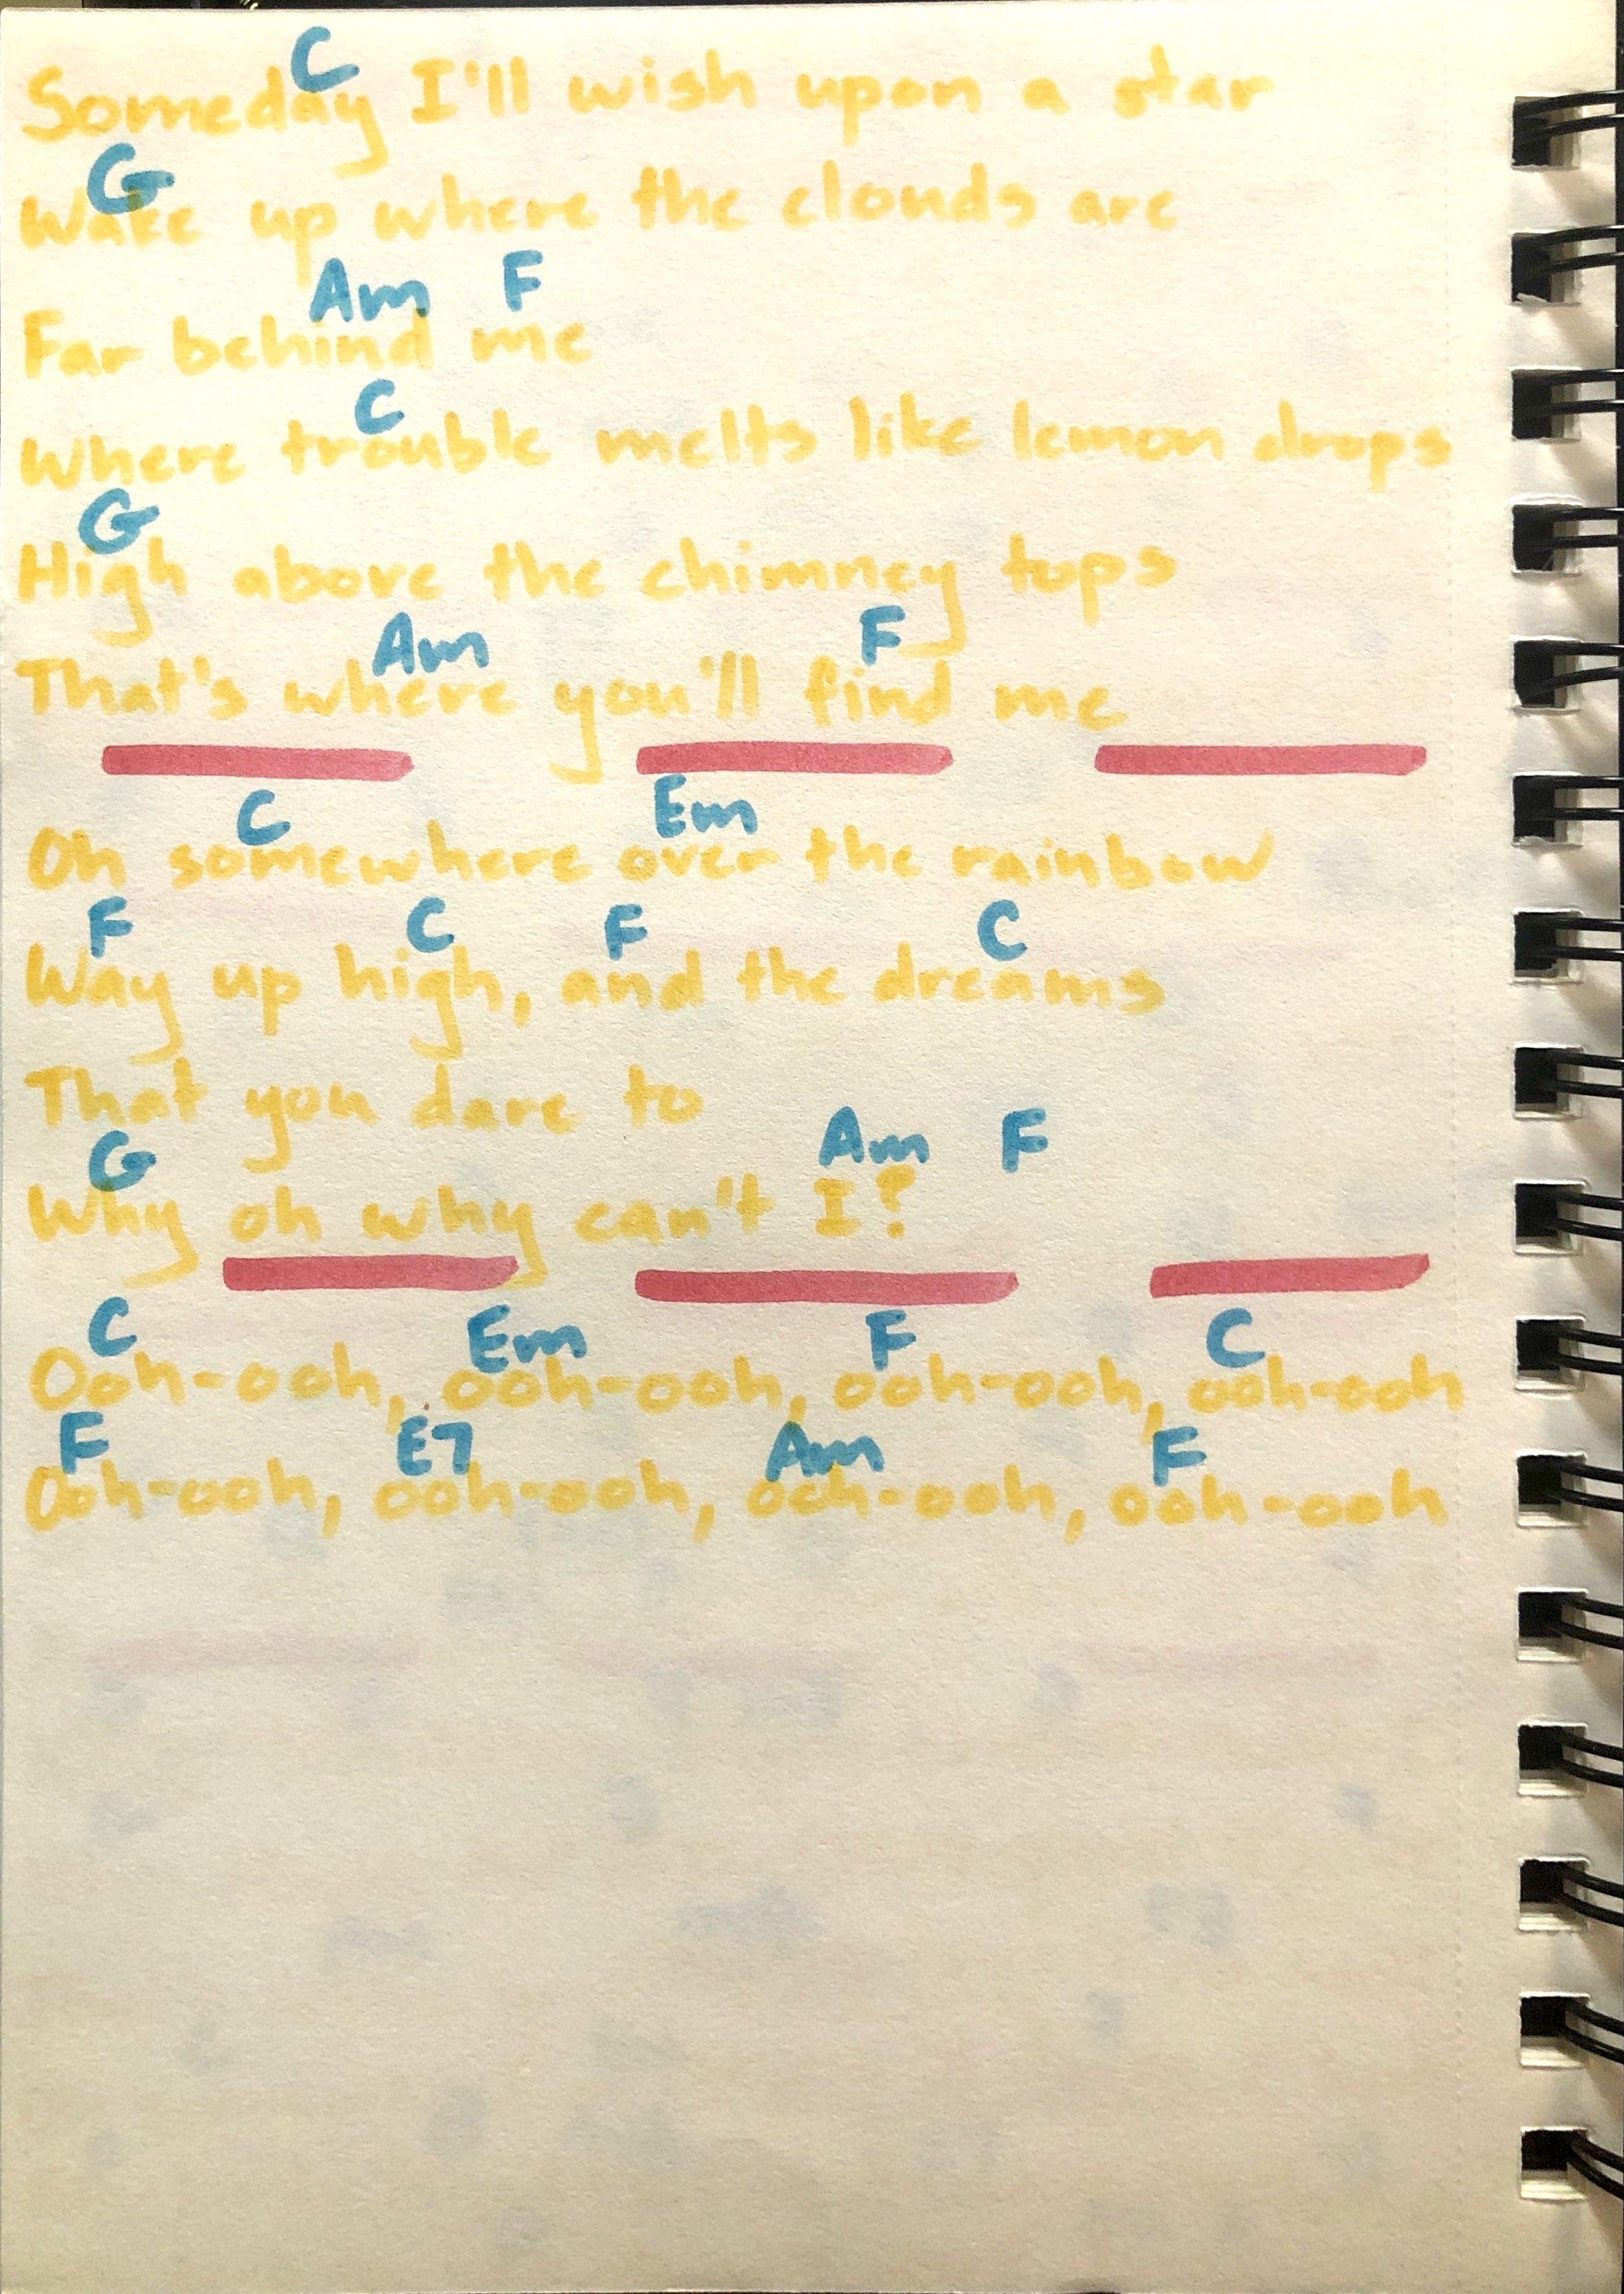 C
Someday I'll wish upon a star
G
Wake up where the clouds are
Am F
Far behind me
C
Where trouble melts like lemon drops
G
High above the chimney tops
Am F
That's where you'll find me
C Em
Oh somewhere over the rainbow
F C F C
Way up high, and the dreams
That you dare to
G Am F
Why oh why can't I?
C Em F C
Ooh-ooh, ooh-ooh, ooh-ooh, ooh-ooh
F E7 Am F
Ooh-ooh, ooh-ooh, ooh-ooh, ooh-ooh